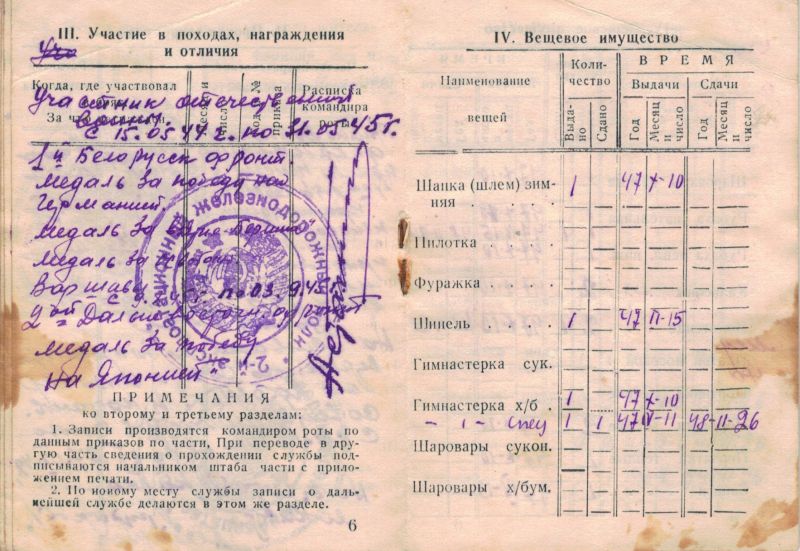 III. Участие в походах, награждения
и отличия
Когда, где участвовал
За что
Месяц и число
приказа
Расписка
командира
роты
Участник отечественной
с 15.05.44 г. по 31.05.45 г.
1й Белорусск фронт.
медаль за победу над
Германией
медаль за взятие Берлина"
медаль за
Варшавы
с 9. по 03.9.45 г.
2ой Дальневосточн фронт
медаль За победу
на Японией"
ПРИМЕЧАНИЯ
ко второму и третьему разделам:
1. Записи производятся командиром роты по
данным приказов по части, При переводе в дру-
гую часть сведения о прохождении службы под-
писываются начальником штаба части с прило-
жением печати.
2. По новому месту службы записи о даль-
нейшей службе делаются в этом же разделе.
6
IV. Вещевое имущество
Наименование
вещей
Коли-
чество
ВРЕМЯ
Выдачи
Сдачи
Выда-
но
Сдано
Год
Месяц и число
Год
Месяц и число
Шапка (шлем) зим-
няя . . . . . 1 47 X-10
Пилотка . . . .
Фуражка . . . .
Шинель . . . . 1 47 II-15
Гимнастерка сук.
Гимнастерка х/б . 1 47 X-10
- 1 - Спец 1 1 47 IV-11 48-II-26
Шаровары сукон.
Шаровары х/бум.